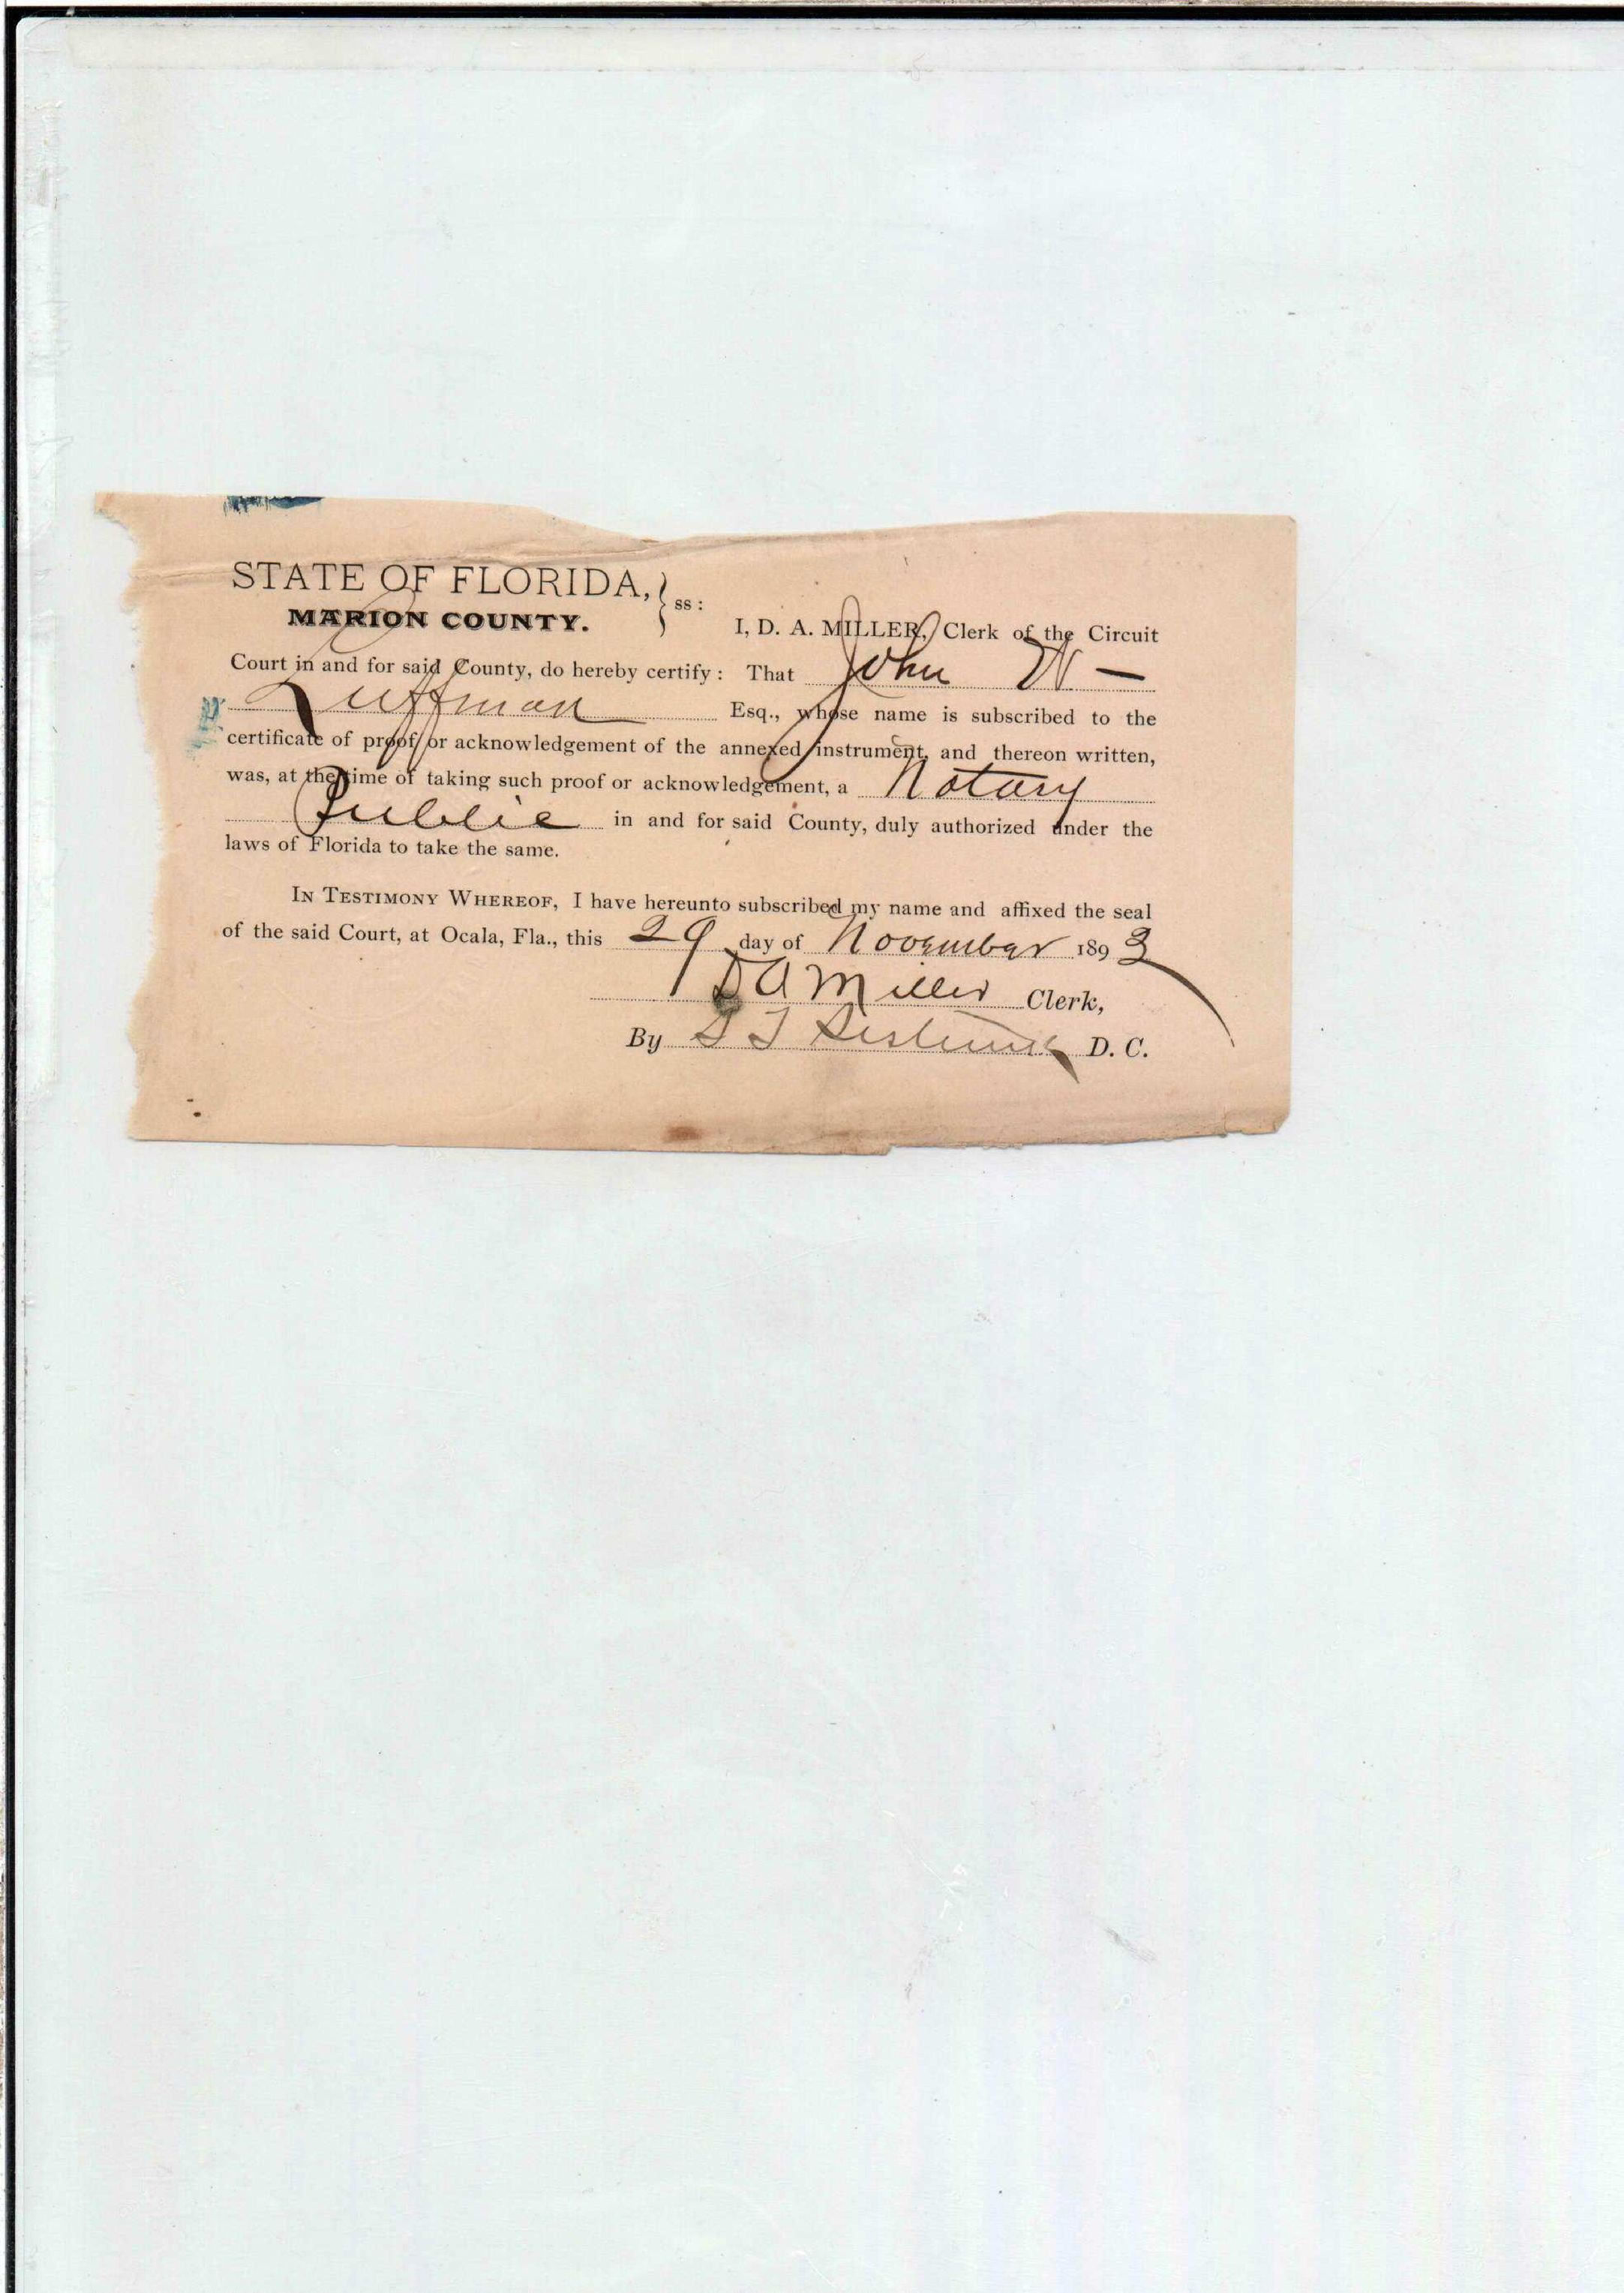 STATE OF FLORIDA, } ss:
MARION COUNTY.
I, D. A. MILLER, Clerk of the Circuit
Court in and for said County, do hereby certify: That John W —
Luffman Esq., whose name is subscribed to the
certificate of proof or acknowledgement of the annexed instrument, and thereon written,
was, at the time of taking such proof or acknowledgement, a Notary
Public in and for said County, duly authorized under the
laws of Florida to take the same.
IN TESTIMONY WHEREOF, I have hereunto subscribed my name and affixed the seal
of the said Court, at Ocala, Fla., this 29 day of November 1893
D A Miller Clerk,
By S T D. C.